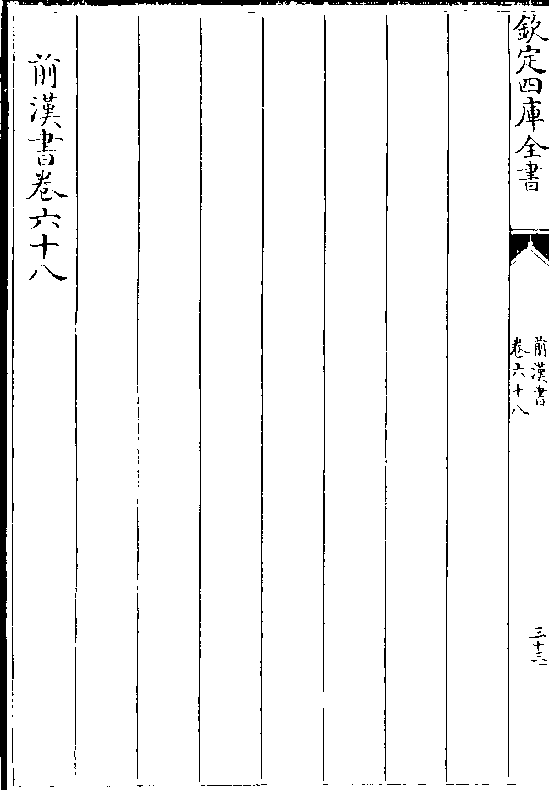 欽定四庫全書
前漢書
卷六十八
三十三
前漢書卷六十八